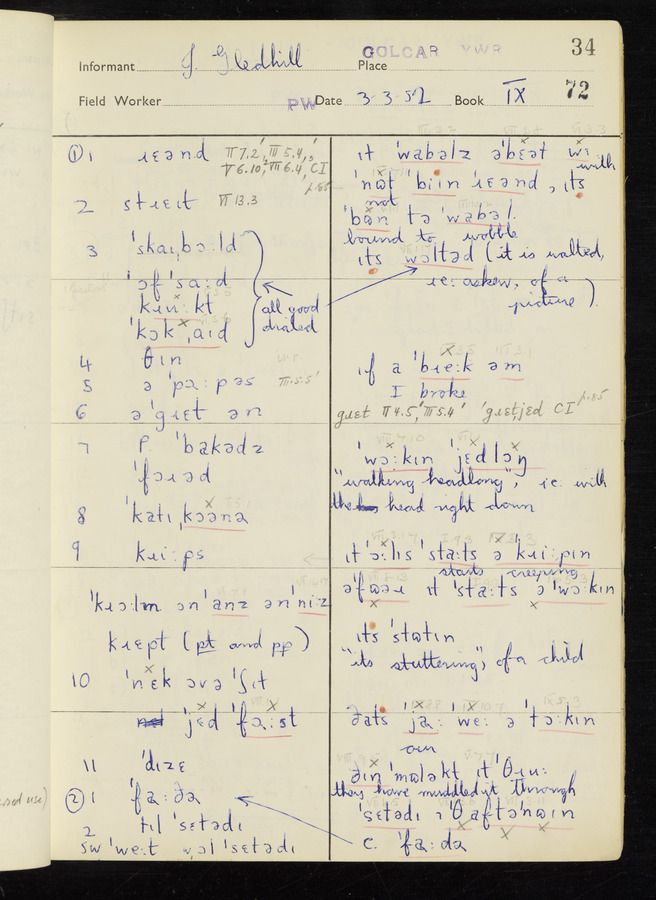 GOLCAR YWR
34
Informant J. Gledhill Place
Field Worker PW Date 3-3-52 Book IX 72
① 1 ɹɛənd II 7.2, III 5.4,
V 6.10, III 6.4, CI
p.85
2 stɹɛɪt VI 13.3
3 ˈskaɪˌbɔːld
ˈɔfˈsaːd
ˈkɔkˌaɪd
all good
dialect
4 θɪn
5 ə ˈpaːpəs III.5.5
6 ə ˈgɹɛt ən
7 P. ˈbakədz
ˈfɔɹəd
8 ˈkatɪˌkɔənə
9 kɹiːps
ˈkɹɔːlɪn ɔn ˈanz ənˈniːz
kɹɛpt (pt and pp)
10 ˈnɛk ɔvə ˈʃɪt
ˈjɛd ˈfɔːst
11 ˈdɪzɛ
② 1 ˈfaːðə
2 tɪl ˈsɛtədɪ
SW ˈweːt wɔl ˈsɛtədɪ
ɪt ˈwabəlz əˈbɛət wɪ
with
ˈnɔt ˈbiɪn ˈɹɛənd, ɪts
not
ˈbən tə ˈwabəl.
bound to wobble
ɪts wɔltəd (it is walted,
ie: askew, of a
picture).
ɪf a ˈbɹɛːk əm
I broke
gɹɛt II 4.5, III 5.4 ˈgɹɛtˌjɛd CI p.85
ˈwɔːkɪn ˈjɛdlɔŋ
"walking headlong", ie. with
the head right down
ɪt ˈɔːlɪs ˈstaːts ə ˈkɹiːpɪn
starts creeping
əˈfɔəɹ ɪt ˈstaːts ə ˈwɔːkɪn
ɪts ˈstatɪn
"its stuttering", of a child
ðats ˈjaː ˈweː ə ˈtɔːkɪn
our
ðɪn ˈmaləkt ɪt ˈθɹuː
they have muddled it through
ˈsɛtədɪ ɪ θ aftəˈnəɪn
c. ˈfaːdə